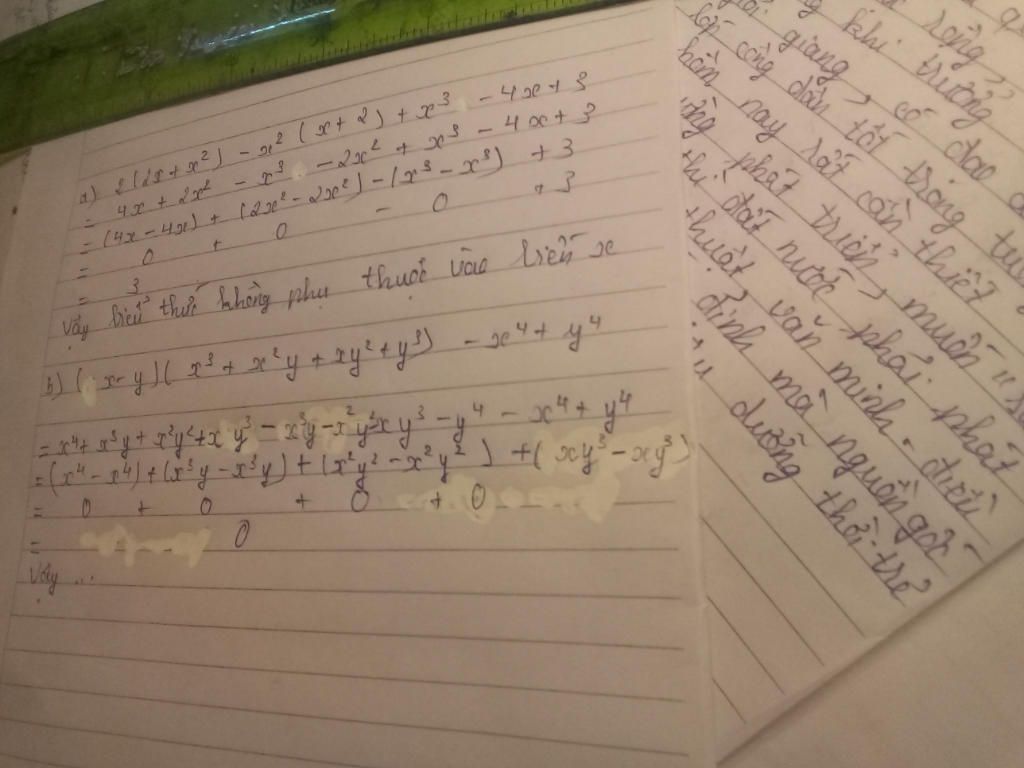 a) 2(2x + x²) - x² (x + 2) + x³ - 4x + 3
= 4x + 2x² - x³ - 2x² + x³ - 4x + 3
= (4x - 4x) + (2x² - 2x²) - (x³ - x³) + 3
= 0 + 0 - 0 + 3
= 3
Vậy biểu thức không phụ thuộc vào biến x
b) (x - y)(x³ + x²y + xy² + y³) - x⁴ + y⁴
= x⁴ + x³y + x²y² + x y³ - x³y - x²y² xy³ - y⁴ - x⁴ + y⁴
= (x⁴ - x⁴) + (x³y - x³y) + (x²y² - x²y²) + (xy³ - xy³)
= 0 + 0 + 0 + 0
= 0
Vậy ...
sống
khi trường
giang, có đạo
công dân tốt trong
nay rất cần thiết
phát triển, muốn
đất nước phải phát
thuật văn minh. điều
định mà nguồn gốc
dưỡng thời trẻ